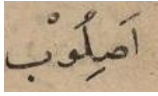 اَصِلُوبْ